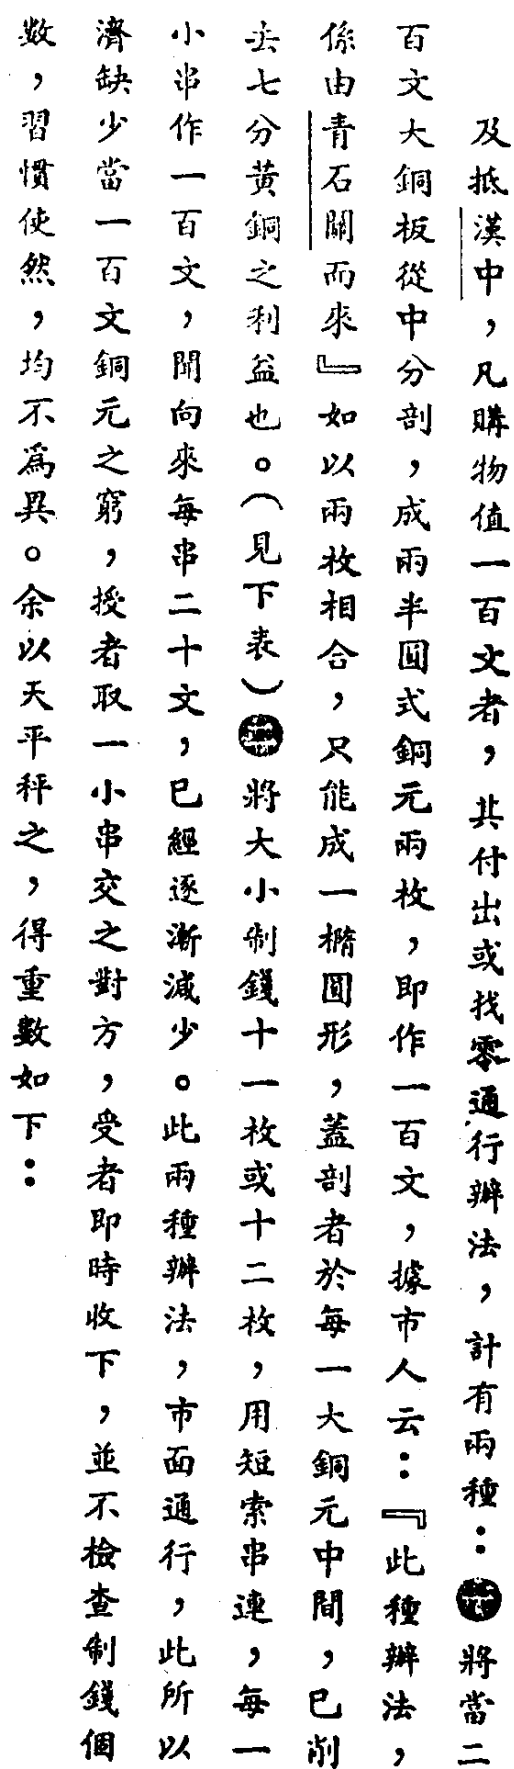 及抵漢中，凡購物值一百文者，其付出或找零通行辦法，計有兩種：將當二
百文大銅板從中分剖，成兩半圓式銅元兩枚，即作一百文，據市人云：『此種辦法，
係由青石關而來』如以兩枚相合，只能成一橢圓形，蓋剖者於每一大銅元中間，已削
去七分黃銅之利益也。（見下表）將大小制錢十一枚或十二枚，用短索串連，每一
小串作一百文，聞向來每串二十文，已經逐漸減少。此兩種辦法，市面通行，此所以
濟缺少當一百文銅元之窮，授者取一小串交之對方，受者即時收下，並不檢查制錢個
數，習慣使然，均不為異。余以天平秤之，得重數如下：